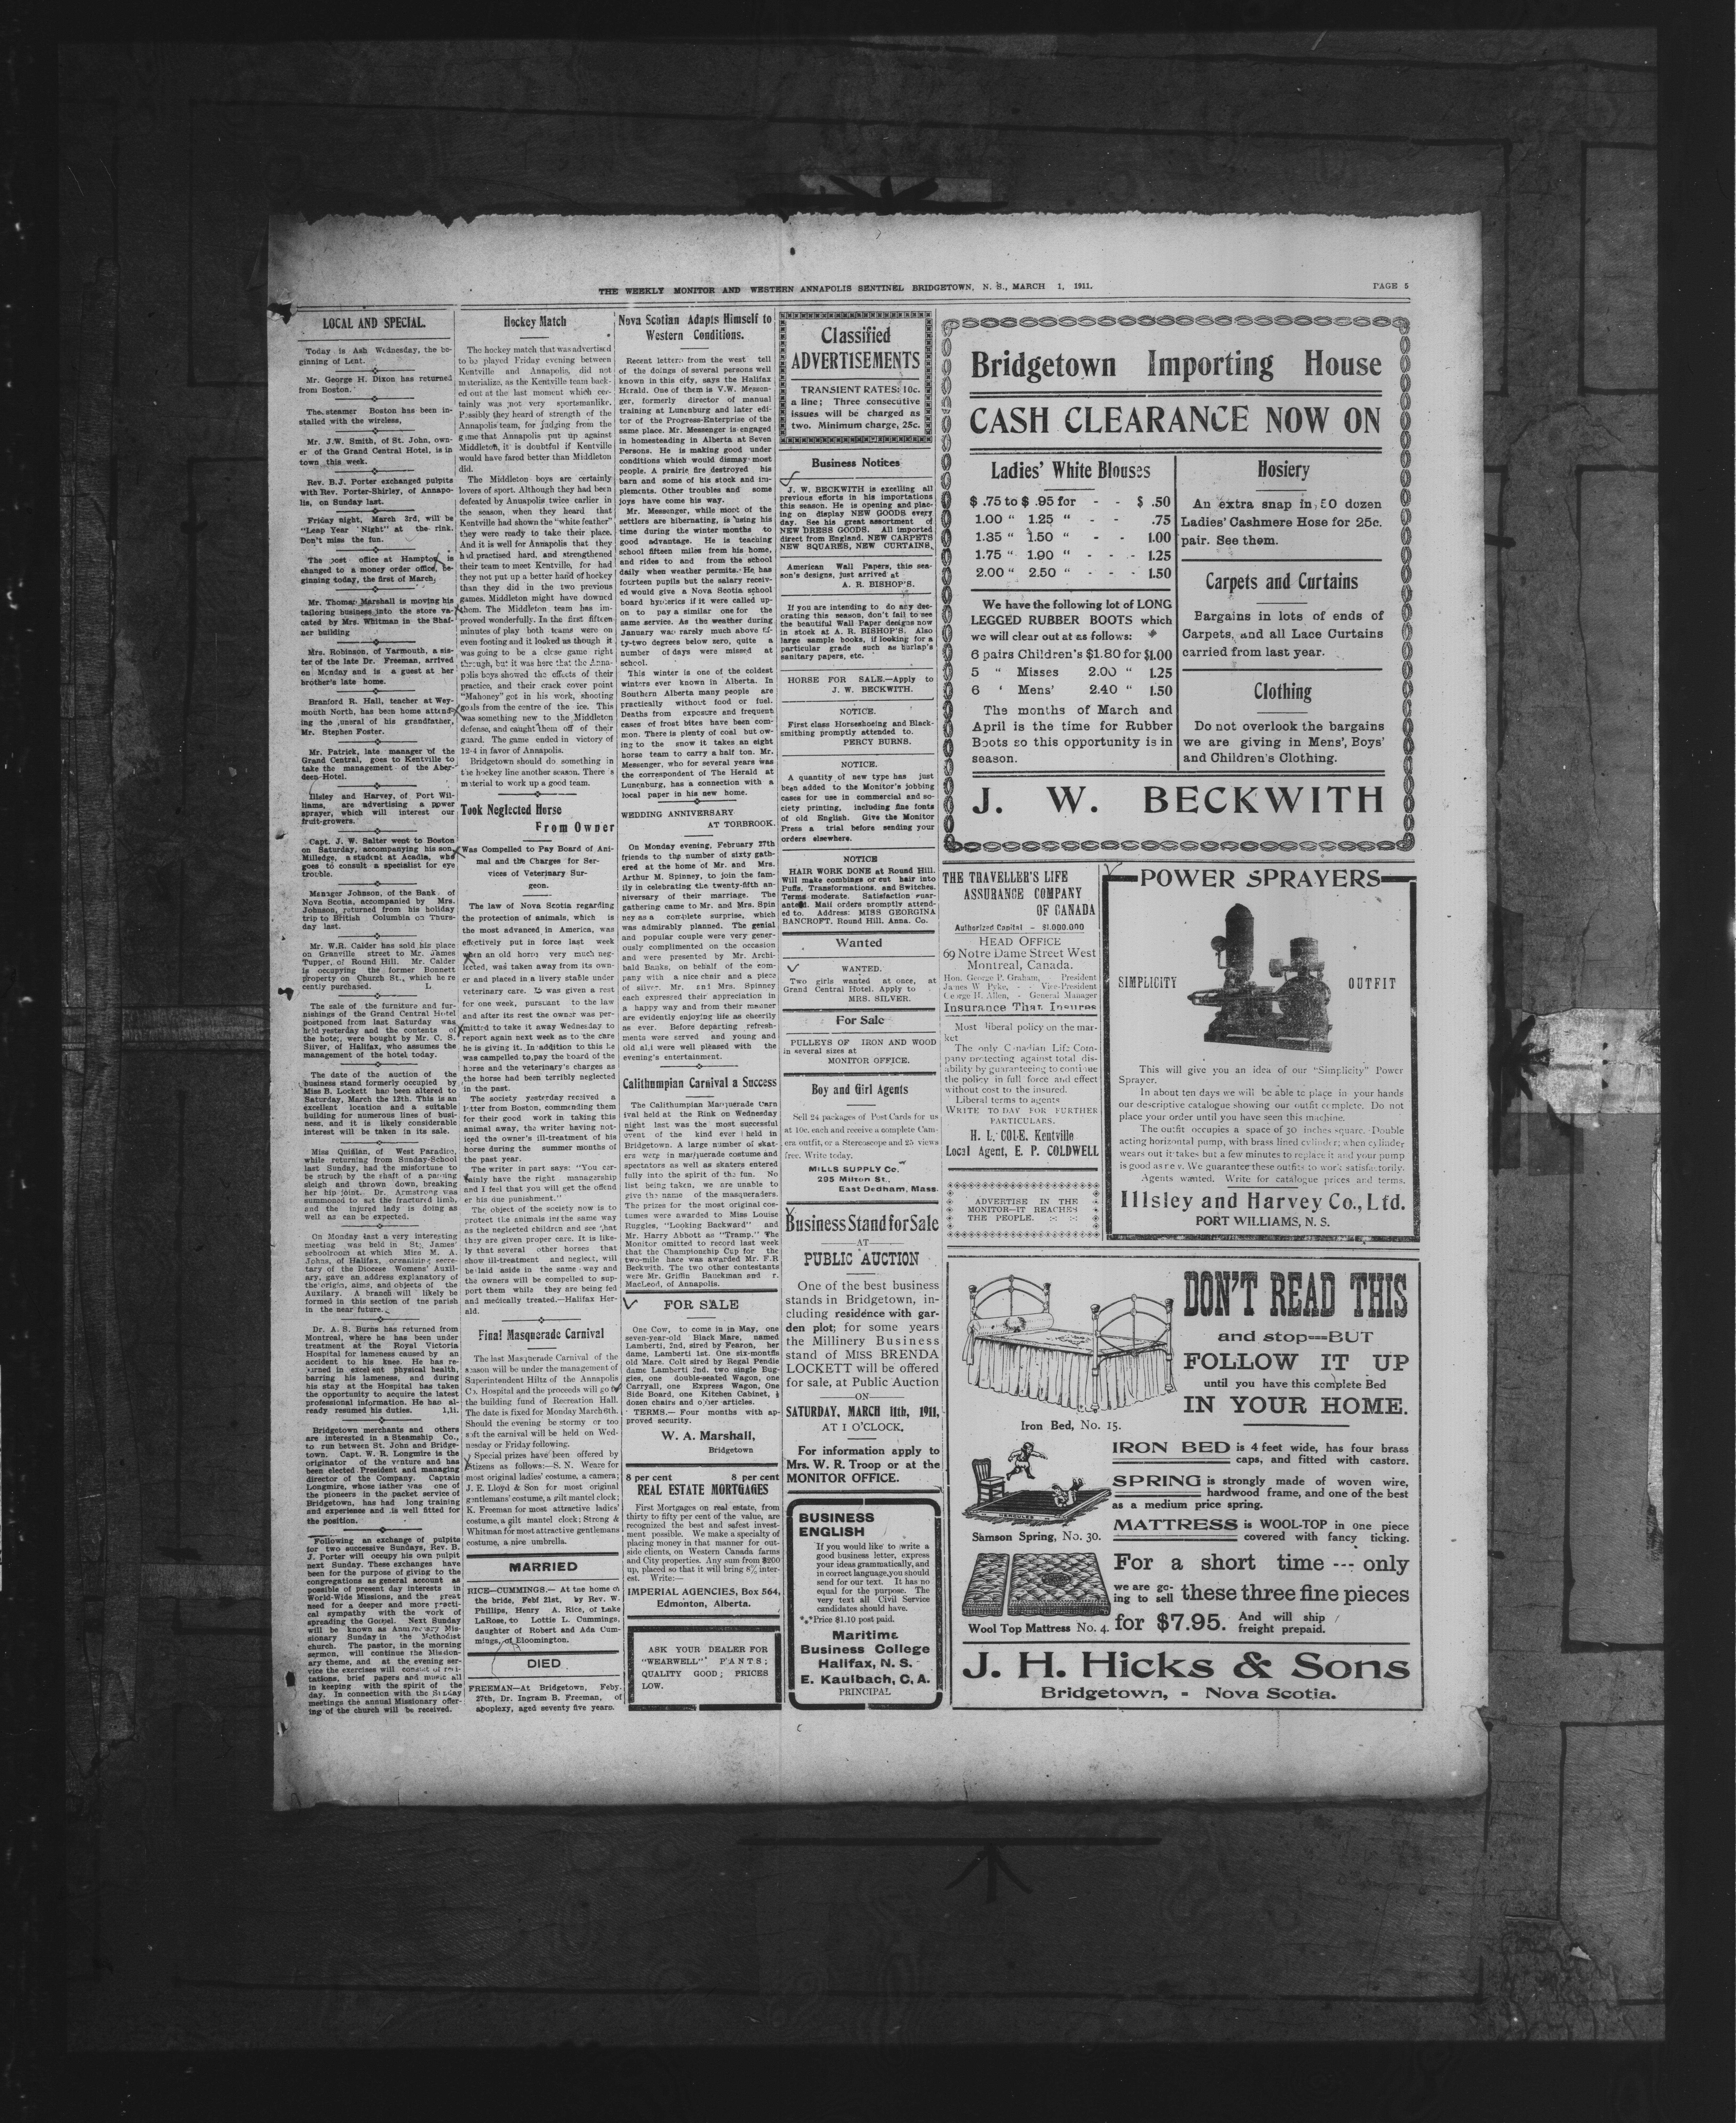 THE WEEKLY MONITOR AND WESTERN ANNAPOLIS SENTINEL BRIDGETOWN, N. S., MARCH 1, 1911.
PAGE 5
LOCAL AND SPECIAL.
Today is Ash Wednesday, the be-
ginning of Lent.
Mr. George H. Dixon has returned
from Boston.
The steamer Boston has been in-
stalled with the wireless,
Mr. J.W. Smith, of St. John, own-
er of the Grand Central Hotel, is in
town this week.
Rev. B.J. Porter exchanged pulpits
with Rev. Porter-Shirley, of Annapo-
lis, on Sunday last.
Friday night, March 3rd, will be
"Leap Year Night" at the rink.
Don't miss the fun.
The post office at Hampton, is
changed to a money order office, be-
ginning today, the first of March,
Mr. Thomas Marshall is moving his
tailoring business into the store va-
cated by Mrs. Whitman in the Shaf-
ner building
Mrs. Robinson, of Yarmouth, a sis-
ter of the late Dr. Freeman, arrived
on Monday and is a guest at her
brother's late home.
Branford R. Hall, teacher at Wey-
mouth North, has been home attend-
ing the funeral of his grandfather,
Mr. Stephen Foster.
Mr. Patrick, late manager of the
Grand Central, goes to Kentville to
take the management of the Aber-
deen Hotel.
Illsley and Harvey, of Port Wil-
liams, are advertising a power
sprayer, which will interest our
fruit-growers.
Capt. J. W. Salter went to Boston
on Saturday, accompanying his son,
Milledge, a student at Acadia, who
goes to consult a specialist for eye
trouble.
Manager Johnson, of the Bank of
Nova Scotia, accompanied by Mrs.
Johnson, returned from his holiday
trip to British Columbia on Thurs-
day last.
Mr. W.R. Calder has sold his place
on Granville street to Mr. James
Tupper, of Round Hill. Mr. Calder
is occupying the former Bonnett
property on Church St., which he re
cently purchased. L.
The sale of the furniture and fur-
nishings of the Grand Central Hotel
postponed from last Saturday was
held yesterday and the contents of
the hotel, were bought by Mr. C. S.
Silver, of Halifax, who assumes the
management of the hotel today.
The date of the auction of the
business stand formerly occupied by
Miss B. Lockett has been altered to
Saturday, March the 12th. This is an
excellent location and a suitable
building for numerous lines of busi-
ness, and it is likely considerable
interest will be taken in its sale.
Miss Quinlan, of West Paradise,
while returning from Sunday-School
last Sunday, had the misfortune to
be struck by the shaft of a passing
sleigh and thrown down, breaking
her hip joint. Dr. Armstrong was
summoned to set the fractured limb,
and the injured lady is doing as
well as can be expected.
On Monday last a very interesting
meeting was held in St. James'
schoolroom at which Miss M. A.
Johns, of Halifax, organizing secre-
tary of the Diocese Womens' Auxil-
ary, gave an address explanatory of
the origin, aims, and objects of the
Auxilary. A branch will likely be
formed in this section of the parish
in the near future.
Dr. A. S. Burns has returned from
Montreal, where he has been under
treatment at the Royal Victoria
Hospital for lameness caused by an
accident to his knee. He has re-
turned in excellent physical health,
barring his lameness, and during
his stay at the Hospital has taken
the opportunity to acquire the latest
professional information. He has al-
ready resumed his duties. 1,11.
Bridgetown merchants and others
are interested in a Steamship Co.,
to run between St. John and Bridge-
town. Capt. W. R. Longmire is the
originator of the venture and has
been elected President and managing
director of the Company. Captain
Longmire, whose father was one of
the pioneers in the packet service of
Bridgetown, has had long training
and experience and is well fitted for
the position.
Following an exchange of pulpits
for two successive Sundays, Rev. B.
J. Porter will occupy his own pulpit
next Sunday. These exchanges have
been for the purpose of giving to the
congregations as general account as
possible of present day interests in
World-Wide Missions, and the great
need for a deeper and more practi-
cal sympathy with the work of
spreading the Gospel. Next Sunday
will be known as Anniversary Mis-
sionary Sunday in the Methodist
church. The pastor, in the morning
sermon, will continue the Mission-
ary theme, and at the evening ser-
vice the exercises will consist of reci-
tations, brief papers and music all
in keeping with the spirit of the
day. In connection with the Sunday
meetings the annual Missionary offer-
ing of the church will be received.
Hockey Match
The hockey match that was advertised
to be played Friday evening between
Kentville and Annapolis, did not
materialize, as the Kentville team back-
ed out at the last moment which cer-
tainly was not very sportsmanlike.
Possibly they heard of strength of the
Annapolis team, for judging from the
game that Annapolis put up against
Middleton, it is doubtful if Kentville
would have fared better than Middleton
did.
The Middleton boys are certainly
lovers of sport. Although they had been
defeated by Annapolis twice earlier in
the season, when they heard that
Kentville had shown the "white feather"
they were ready to take their place.
And it is well for Annapolis that they
had practised hard, and strengthened
their team to meet Kentville, for had
they not put up a better hand of hockey
than they did in the two previous
games. Middleton might have downed
them. The Middleton team has im-
proved wonderfully. In the first fifteen
minutes of play both teams were on
even footing and it looked as though it
was going to be a close game right
through, but it was here that the Anna-
polis boys showed the effects of their
practice, and their crack cover point
"Mahoney" got in his work, shooting
goals from the centre of the ice. This
was something new to the Middleton
defense, and caught them off of their
guard. The game ended in victory of
12-4 in favor of Annapolis.
Bridgetown should do something in
the hockey line another season. There's
material to work up a good team.
Took Neglected Horse
From Owner
Was Compelled to Pay Board of Ani-
mal and the Charges for Ser-
vices of Veterinary Sur-
geon.
The law of Nova Scotia regarding
the protection of animals, which is
the most advanced in America, was
effectively put in force last week
when an old horse very much neg-
lected, was taken away from its own-
er and placed in a livery stable under
veterinary care. It was given a rest
for one week, pursuant to the law
and after its rest the owner was per-
mitted to take it away Wednesday to
report again next week as to the care
he is giving it. In addition to this he
was campelled to pay the board of the
horse and the veterinary's charges as
the horse had been terribly neglected
in the past.
The society yesterday received a
letter from Boston, commending them
for their good work in taking this
animal away, the writer having not-
iced the owner's ill-treatment of his
horse during the summer months of
the past year.
The writer in part says: "You cer-
tainly have the right managership
and I feel that you will get the offend
er his due punishment."
The object of the society now is to
protect the animals in the same way
as the neglected children and see that
they are given proper care. It is like-
ly that several other horses that
show ill-treatment and neglect, will
be laid aside in the same way and
the owners will be compelled to sup-
port them while they are being fed
and medically treated.—Halifax Her-
ald.
Final Masquerade Carnival
The last Masquerade Carnival of the
season will be under the management of
Superintendent Hiltz of the Annapolis
Co. Hospital and the proceeds will go to
the building fund of Recreation Hall.
The date is fixed for Monday March 6th.
Should the evening be stormy or too
soft the carnival will be held on Wed-
nesday or Friday following.
Special prizes have been offered by
citizens as follows:—S. N. Weare for
most original ladies' costume, a camera;
J. E. Lloyd & Son for most original
gentlemans' costume, a gilt mantel clock;
K. Freeman for most attractive ladies'
costume, a gilt mantel clock; Strong &
Whitman for most attractive gentlemans
costume, a nice umbrella.
MARRIED
RICE—CUMMINGS.— At the home of
the bride, Feb1 21st, by Rev. W.
Phillips, Henry A. Rice, of Lake
LaRose, to Lottie L. Cummings,
daughter of Robert and Ada Cum-
mings, of Bloomington.
DIED
FREEMAN—At Bridgetown, Feby.
27th, Dr. Ingram B. Freeman, of
apoplexy, aged seventy five years.
Nova Scotian Adapts Himself to
Western Conditions.
Recent letters from the west tell
of the doings of several persons well
known in this city, says the Halifax
Herald. One of them is V.W. Messen-
ger, formerly director of manual
training at Lunenburg and later edi-
tor of the Progress-Enterprise of the
same place. Mr. Messenger is engaged
in homesteading in Alberta at Seven
Persons. He is making good under
conditions which would dismay most
people. A prairie fire destroyed his
barn and some of his stock and im-
plements. Other troubles and some
joys have come his way.
Mr. Messenger, while most of the
settlers are hibernating, is using his
time during the winter months to
good advantage. He is teaching
school fifteen miles from his home,
and rides to and from the school
daily when weather permits. He has
fourteen pupils but the salary receiv-
ed would give a Nova Scotia school
board hysterics if it were called up-
on to pay a similar one for the
same service. As the weather during
January was rarely much above fif-
ty-two degrees below zero, quite a
number of days were missed at
school.
This winter is one of the coldest
winters ever known in Alberta. In
Southern Alberta many people are
practically without food or fuel.
Deaths from exposure and frequent
cases of frost bites have been com-
mon. There is plenty of coal but ow-
ing to the snow it takes an eight
horse team to carry a half ton. Mr.
Messenger, who for several years was
the correspondent of The Herald at
Lunenburg, has a connection with a
local paper in his new home.
WEDDING ANNIVERSARY
AT TORBROOK.
On Monday evening, February 27th
friends to the number of sixty gath-
ered at the home of Mr. and Mrs.
Arthur M. Spinney, to join the fam-
ily in celebrating the twenty-fifth an-
niversary of their marriage. The
gathering came to Mr. and Mrs. Spin
ney as a complete surprise, which
was admirably planned. The genial
and popular couple were very gener-
ously complimented on the occasion
and were presented by Mr. Archi-
bald Banks, on behalf of the com-
pany with a nice chair and a piece
of silver. Mr. and Mrs. Spinney
each expressed their appreciation in
a happy way and from their manner
are evidently enjoying life as cheerily
as ever. Before departing refresh-
ments were served and young and
old all were well pleased with the
evening's entertainment.
Calithumpian Carnival a Success
The Calithumpian Masquerade Carn
ival held at the Rink on Wednesday
night last was the most successful
event of the kind ever held in
Bridgetown. A large number of skat-
ers were in masquerade costume and
spectators as well as skaters entered
fully into the spirit of the fun. No
list being taken, we are unable to
give the name of the masqueraders.
The prizes for the most original cos-
tumes were awarded to Miss Louise
Ruggles, "Looking Backward" and
Mr. Harry Abbott as "Tramp." The
Monitor omitted to record last week
that the Championship Cup for the
two-mile race was awarded Mr. F.R
Beckwith. The two other contestants
were Mr. Griffin Banckman and r.
MacLeod, of Annapolis.
FOR SALE
One Cow, to come in in May, one
seven-year-old Black Mare, named
Lamberti, 2nd, sired by Fearon, her
dame, Lamberti 1st. One six-months
old Mare. Colt sired by Regal Pendie
dame Lamberti 2nd, two single Bug-
gies, one double-seated Wagon, one
Carryall, one Express Wagon, One
Side Board, one Kitchen Cabinet,
dozen chairs and other articles.
TERMS.— Four months with ap-
proved security.
W. A. Marshall,
Bridgetown
8 per cent 8 per cent
REAL ESTATE MORTGAGES
First Mortgages on real estate, from
thirty to fifty per cent of the value, are
recognized the best and safest invest-
ment possible. We make a specialty of
placing money in that manner for out-
side clients, on Western Canada farms
and City properties. Any sum from $200
up, placed so that it will bring 8% inter-
est. Write:—
IMPERIAL AGENCIES, Box 564,
Edmonton, Alberta.
ASK YOUR DEALER FOR
"WEARWELL" PANTS;
QUALITY GOOD; PRICES
LOW.
Classified
ADVERTISEMENTS
TRANSIENT RATES: 10c.
a line; Three consecutive
issues will be charged as
two. Minimum charge, 25c.
Business Notices
J. W. BECKWITH is excelling all
previous efforts in his importations
this season. He is opening and plac-
ing on display NEW GOODS every
day. See his great assortment of
NEW DRESS GOODS. All imported
direct from England. NEW CARPETS
NEW SQUARES, NEW CURTAINS.
American Wall Papers, this sea-
son's designs, just arrived at
A. R. BISHOP'S.
If you are intending to do any dec-
orating this season, don't fail to see
the beautiful Wall Paper designs now
in stock at A. R. BISHOP'S. Also
large sample books, if looking for a
particular grade such as burlap's
sanitary papers, etc.
HORSE FOR SALE.—Apply to
J. W. BECKWITH.
NOTICE.
First class Horseshoeing and Black-
smithing promptly attended to.
PERCY BURNS.
NOTICE.
A quantity of new type has just
been added to the Monitor's jobbing
cases for use in commercial and so-
ciety printing, including fine fonts
of old English. Give the Monitor
Press a trial before sending your
orders elsewhere.
NOTICE
HAIR WORK DONE at Round Hill.
Will make combings or cut hair into
Puffs, Transformations, and Switches.
Terms moderate. Satisfaction guar-
anteed. Mail orders promptly attend-
ed to. Address: MISS GEORGINA
BANCROFT. Round Hill. Anna. Co.
Wanted
WANTED.
Two girls wanted at once, at
Grand Central Hotel. Apply to
MRS. SILVER.
For Sale
PULLEYS OF IRON AND WOOD
in several sizes at
MONITOR OFFICE.
Boy and Girl Agents
Sell 24 packages of Post Cards for us
at 10c. each and receive a complete Cam-
era outfit, or a Stereoscope and 25 views
free. Write today.
MILLS SUPPLY Co.
295 Milton St.,
East Dedham, Mass.
Business Stand for Sale
—AT—
PUBLIC AUCTION
One of the best business
stands in Bridgetown, in-
cluding residence with gar-
den plot; for some years
the Millinery Business
stand of MISS BRENDA
LOCKETT will be offered
for sale, at Public Auction
—ON—
SATURDAY, MARCH 11th, 1911,
AT 1 O'CLOCK,
For information apply to
Mrs. W. R. Troop or at the
MONITOR OFFICE.
BUSINESS
ENGLISH
If you would like to write a
good business letter, express
your ideas grammatically, and
in correct language, you should
send for our text. It has no
equal for the purpose. The
very text all Civil Service
candidates should have.
*.*Price $1.10 post paid.
Maritime
Business College
Halifax, N. S.
E. Kaulbach, C. A.
PRINCIPAL
Bridgetown Importing House
CASH CLEARANCE NOW ON
Ladies' White Blouses
$ .75 to $ .95 for - - $ .50
1.00 " 1.25 " - - .75
1.35 " 1.50 " - - 1.00
1.75 " 1.90 " - - - 1.25
2.00 " 2.50 " - - - 1.50
We have the following lot of LONG
LEGGED RUBBER BOOTS which
we will clear out at as follows:
6 pairs Children's $1.80 for $1.00
5 " Misses 2.00 " 1.25
6 ' Mens' 2.40 " 1.50
The months of March and
April is the time for Rubber
Boots so this opportunity is in
season.
Hosiery
An extra snap in, 50 dozen
Ladies' Cashmere Hose for 25c.
pair. See them.
Carpets and Curtains
Bargains in lots of ends of
Carpets, and all Lace Curtains
carried from last year.
Clothing
Do not overlook the bargains
we are giving in Mens', Boys'
and Children's Clothing.
J. W. BECKWITH
THE TRAVELLER'S LIFE
ASSURANCE COMPANY
OF CANADA
Authorized Capital - $1.000.000
HEAD OFFICE
69 Notre Dame Street West
Montreal, Canada.
Hon. George P. Graham, President
James W Pyke, - - Vice-President
George H. Allen, - General Manager
Insurance That Insures
Most liberal policy on the mar-
ket
The only Canadian Life Com-
pany protecting against total dis-
ability by guaranteeing to continue
the policy in full force and effect
without cost to the insured.
Liberal terms to agents
WRITE TO DAY FOR FURTHER
PARTICULARS.
H. L. COLE. Kentville
Local Agent, E. P. COLDWELL
ADVERTISE IN THE
MONITOR—IT REACHES
THE PEOPLE.
POWER SPRAYERS
SIMPLICITY
OUTFIT
This will give you an idea of our "Simplicity" Power
Sprayer.
In about ten days we will be able to place in your hands
our descriptive catalogue showing our outfit complete. Do not
place your order until you have seen this machine.
The outfit occupies a space of 30 inches square. Double
acting horizontal pump, with brass lined cylinder; when cylinder
wears out it takes but a few minutes to replace it and your pump
is good as new. We guarantee these outfits to work satisfactorily.
Agents wanted. Write for catalogue prices and terms.
Illsley and Harvey Co., Ltd.
PORT WILLIAMS, N. S.
DON'T READ THIS
and stop---BUT
FOLLOW IT UP
until you have this complete Bed
IN YOUR HOME.
Iron Bed, No. 15.
IRON BED is 4 feet wide, has four brass
caps, and fitted with castors.
SPRING is strongly made of woven wire,
hardwood frame, and one of the best
as a medium price spring.
HERCULES
Samson Spring, No. 30.
MATTRESS is WOOL-TOP in one piece
covered with fancy ticking.
For a short time --- only
we are go-
ing to sell these three fine pieces
for $7.95. And will ship
freight prepaid.
Wool Top Mattress No. 4.
J. H. Hicks & Sons
Bridgetown, - Nova Scotia.